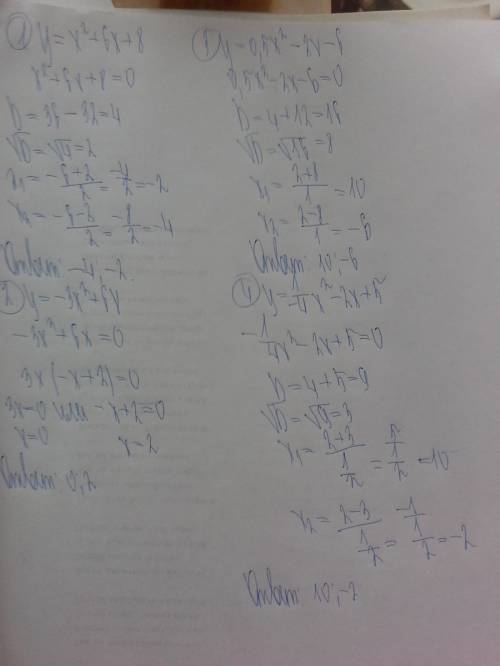 1 y = x² + 6x + 8
x² + 6x + 8 = 0
D = 36 - 32 = 4
√D = √4 = 2
x₁ = -6+2/2 = -4/2 = -2
x₂ = -6-2/2 = -8/2 = -4
Ответ: -4; -2
2 y = -3x² + 6x
-3x² + 6x = 0
3x(-x+2) = 0
3x = 0 или -x+2 = 0
x = 0 x = 2
Ответ: 0; 2
3 y = 0,5x² - 2x - 6
0,5x² - 2x - 6 = 0
D = 4 + 12 = 16
√D = √16 = 8
x₁ = 2+8/1 = 10
x₂ = 2-8/1 = -6
Ответ: 10; -6
4 y = 1/4x² - 2x + 5
-1/4x² - 2x + 5 = 0
D = 4 + 5 = 9
√D = √9 = 3
x₁ = 2+3/1/2 = 5/1/2 = 10
x₂ = 2-3/1/2 = -1/1/2 = -2
Ответ: 10; -2